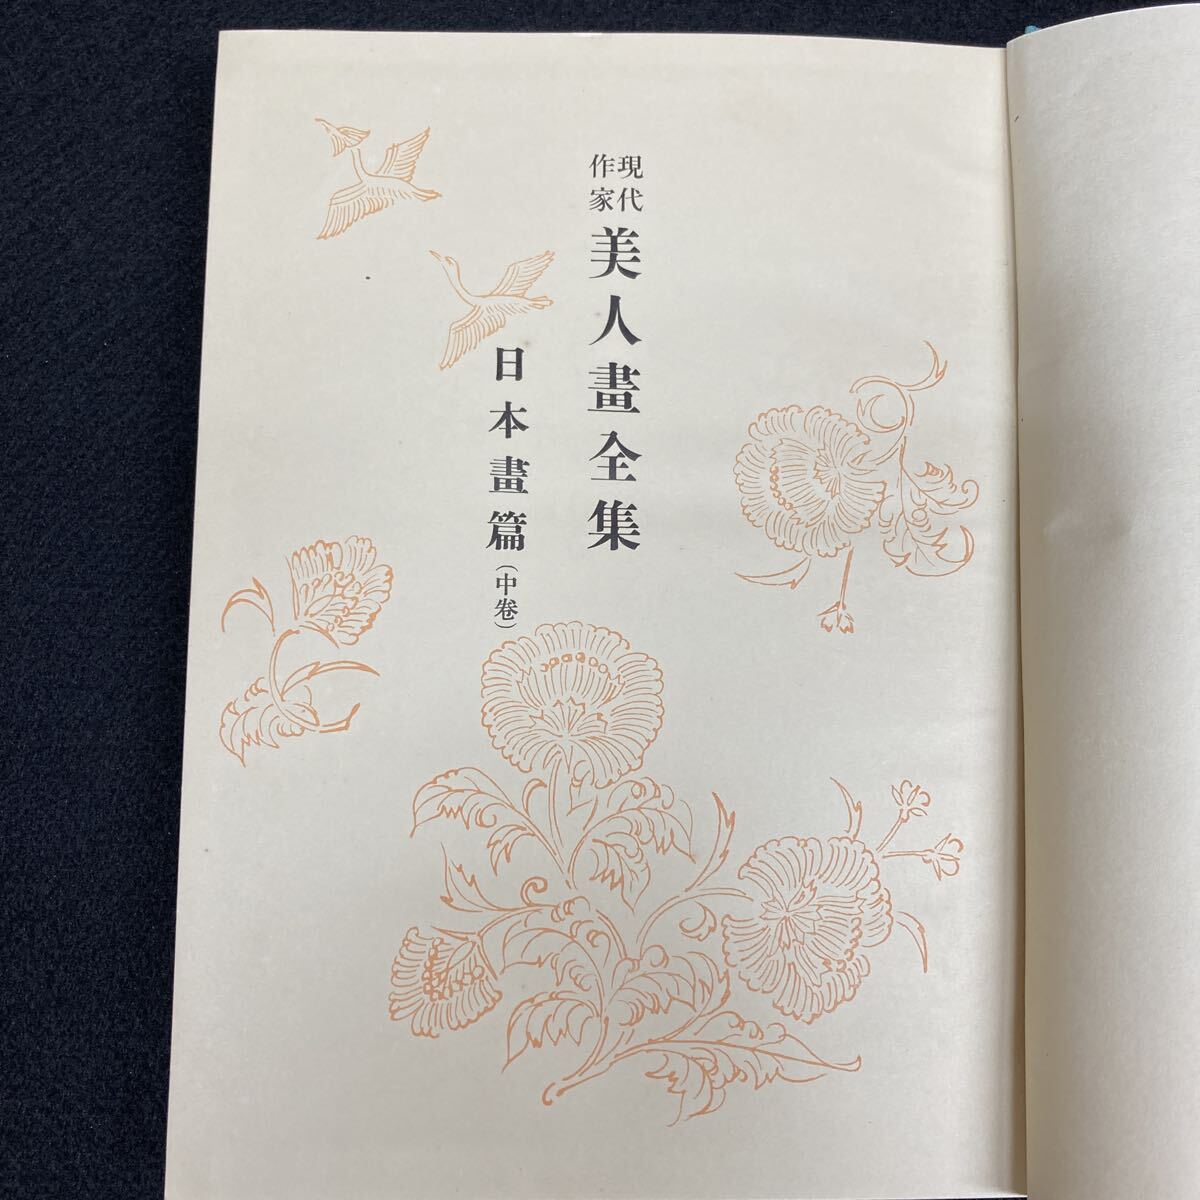 現代作家美人畫全集
日本畫篇(中卷)